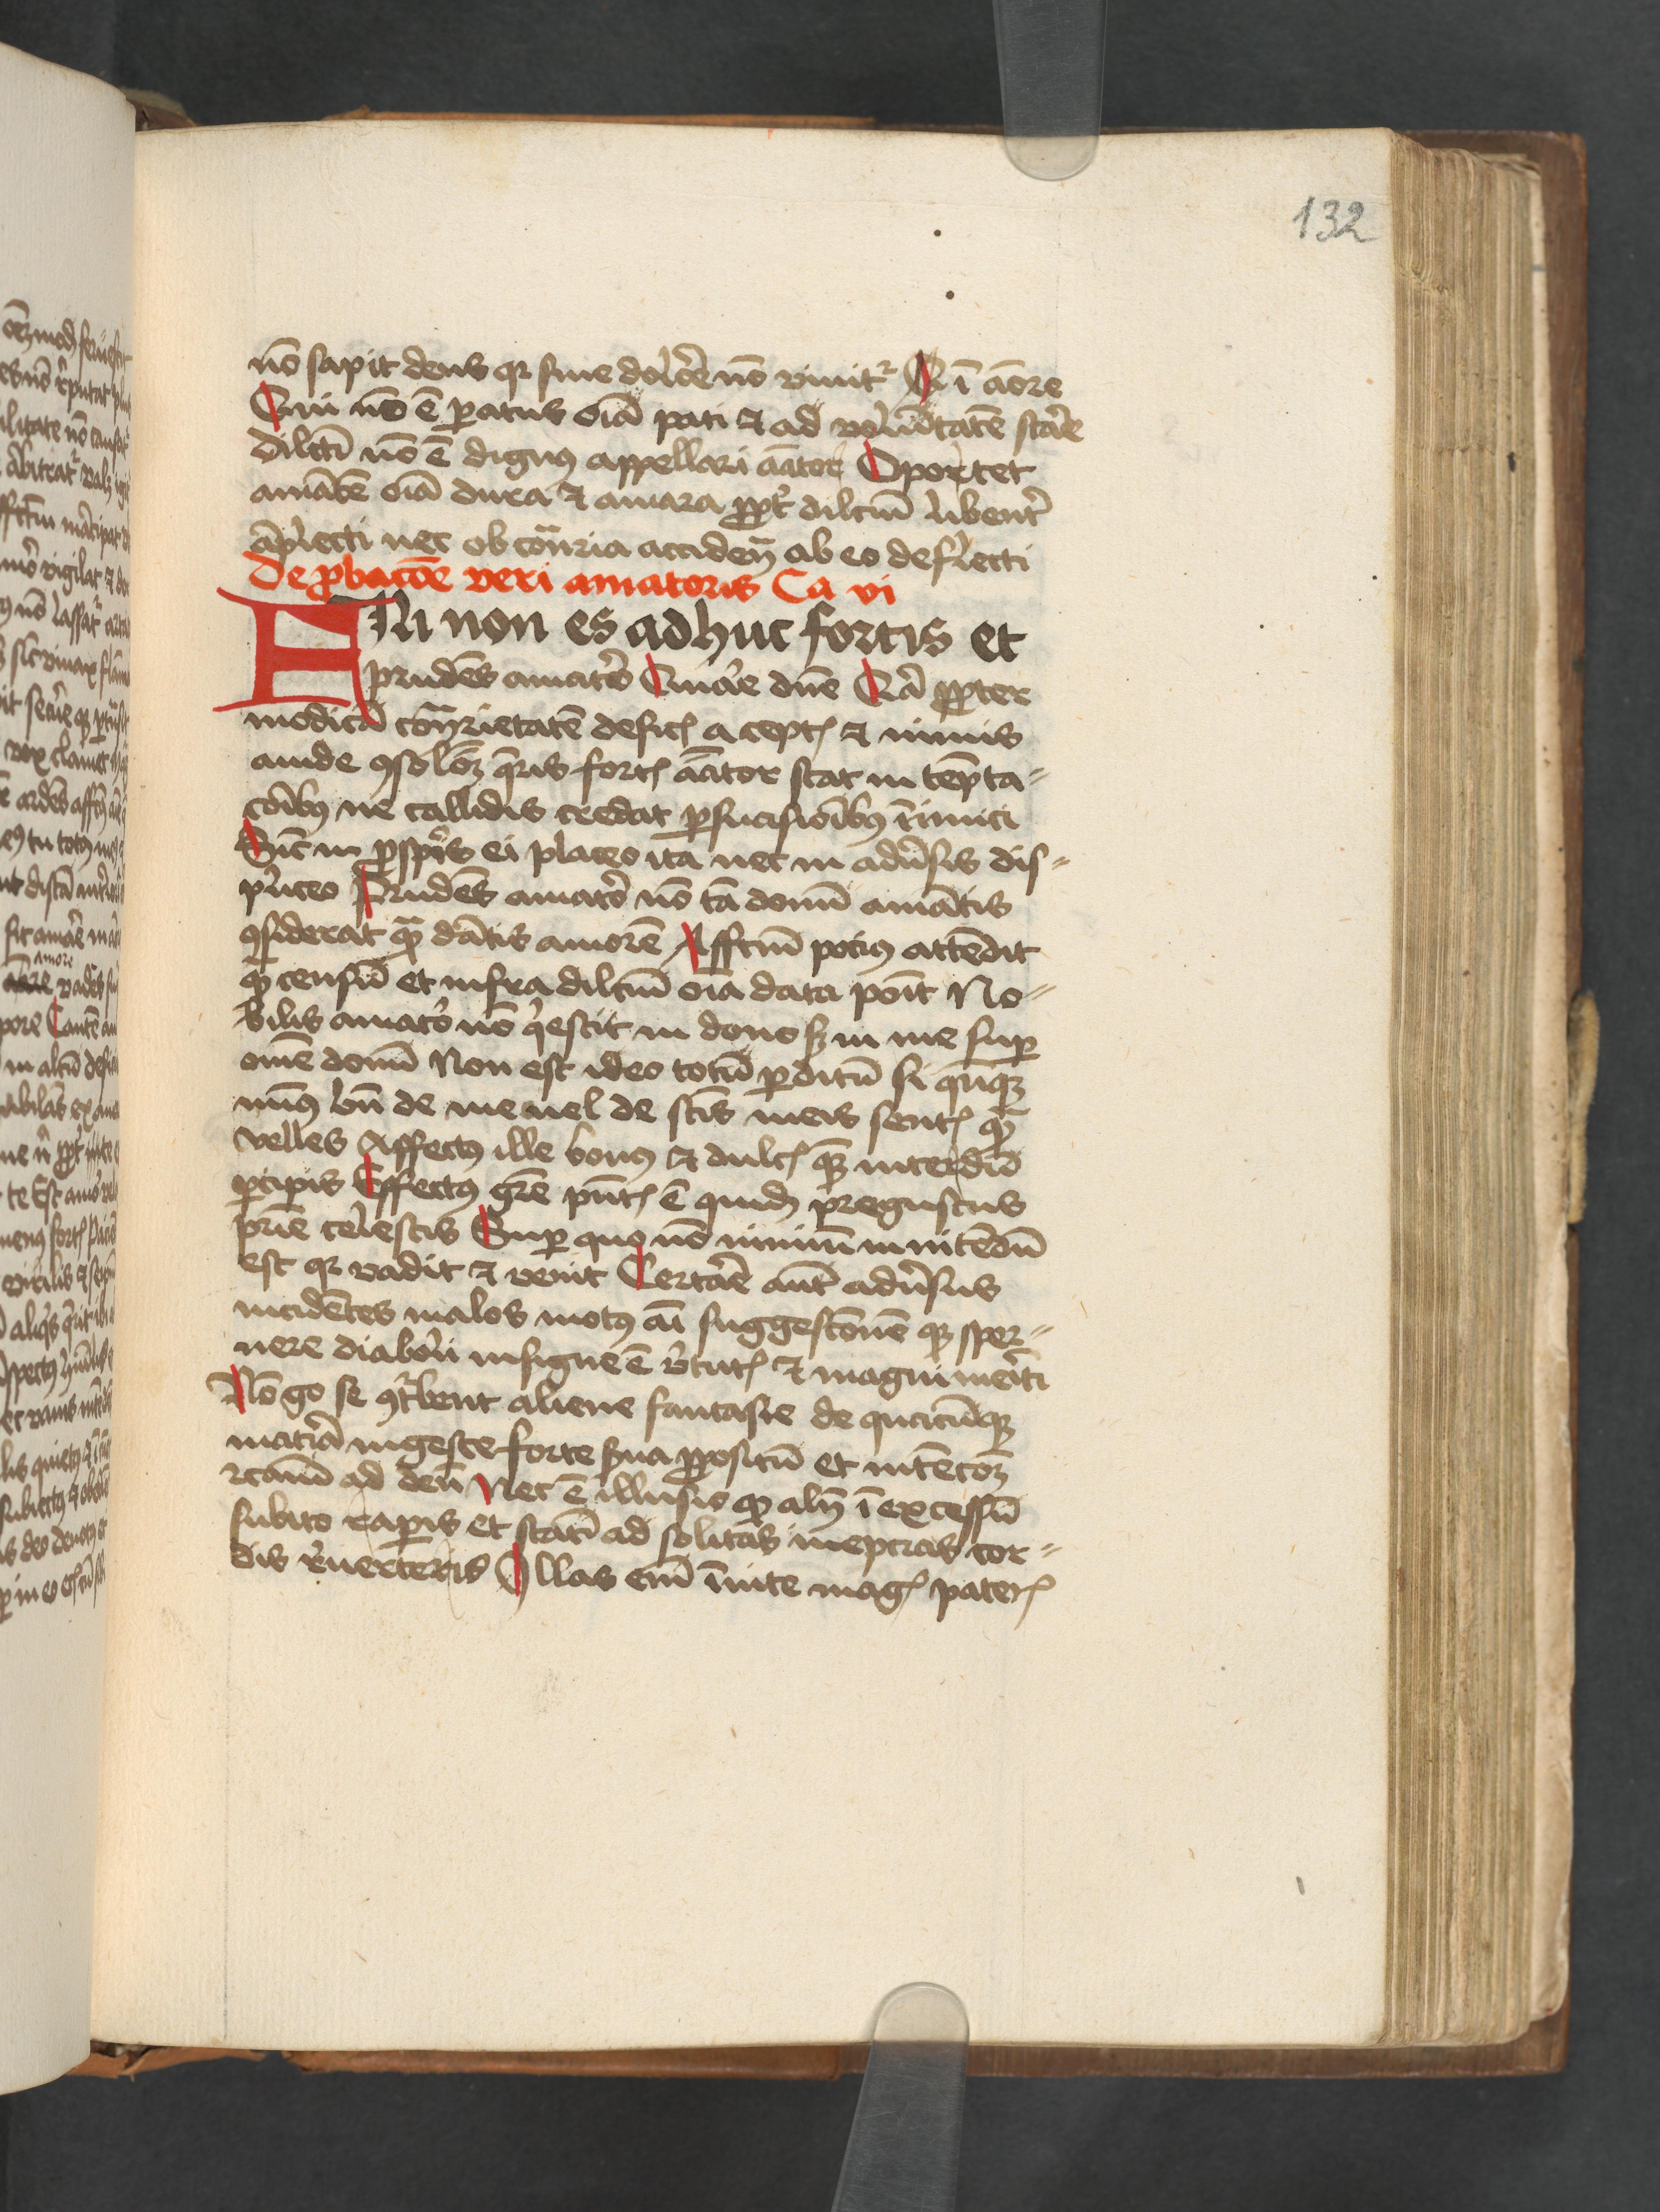 132
nō sapit deus qr sine dolōre nō viuitᷣ Qi ī aōre
Qui nō ē paratus oīa pati ⁊ ad volūtatē stare
dilcti nō ē dignꝰ appellari aātor Oportet
amātē oīa dura ⁊ amara ꝓpt dilcm̄ libent̄
āplecti nec ob cōtraria accidenᷓ ab eo deflecti
De ꝓbacōe veri amatoris Ca vi
FIli non es adhuc fortis et
prudēs amator Quare dn̄e Qa ꝓpter
modicā cōtrarietatē deficꝭ a ceptꝭ ⁊ nimis
auide ꝯsolōꝫ q̄ris fortꝭ aātor stat in tēpta⸗
cōibꝰ ne callidis credat ꝑsuasiōibꝰ īimici
Sic in ꝓsperis ei placeo ita nec in aduersis dis⸗
pliceo Prudēs amator nō tā donū amātis
ꝯsiderat qͣ dātis amorē Affcm̄ potiꝰ attēdit
qͣ censū et infra dilcm̄ oīa data poīt No⸗
bilis amator nō qescit in dono sꝫ in me suꝑ
omē donū Non est ideo totū ꝑditū si qn̄qꝫ
minꝰ bn̄ de me uel de scīs meis sentꝭ qͣ
velles Affectꝰ ille bonꝰ ⁊ dulcꝭ quē interdū
ꝑcipis Effectꝰ gr̄e pn̄tꝭ ē quidā pregustus
pr̄ie celestis Suꝑ quo nō nimiū innitēdū
est qr vadit ⁊ venit Certare aūt aduersus
incidētes malos motꝰ aī suggestionē qꝫ sper⸗
nere diaboli insigne ē v̄tutꝭ ⁊ magni meriti
Nō go te ꝯturbent aliene fantasie de quacūqꝫ
mat̄ia ingeste forte s̄ua ꝓpositū et intēcōꝫ
rcām ad deū Nec ē illusio qꝫ alīn ī excessū
subito raperis et stati ad solitas ineptias cor⸗
dis reuerteris Illas em̄ īuite magꝭ paterꝭ